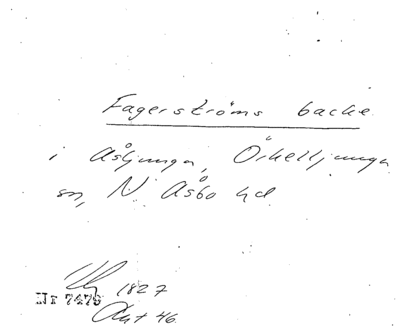 Fagerströms backe
i Åsljunga, Örkelljunga
sn, N Åsbo hd
1827
Nr 7476
Akt 46